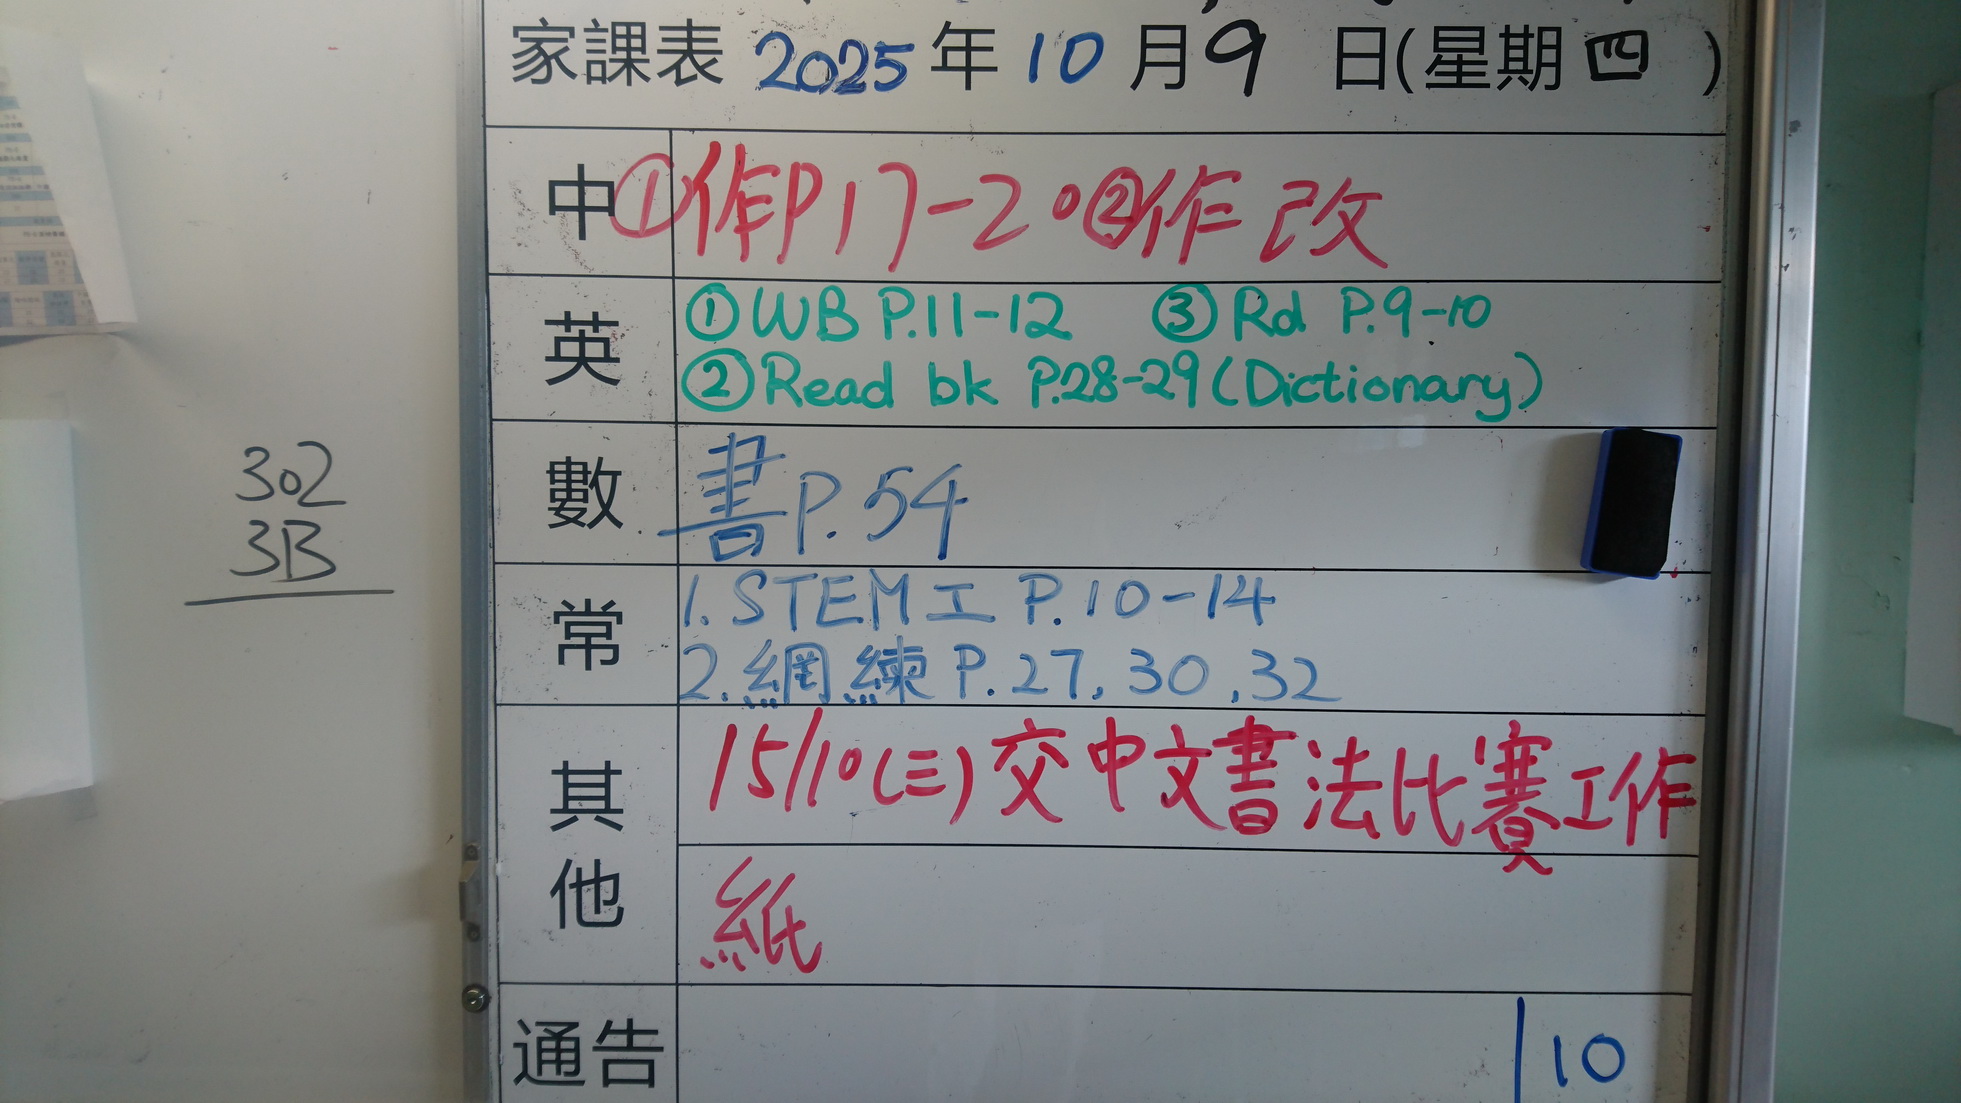 家課表 2025年10月9日(星期四)
中 ①作P17-20 ②作改
英 ①WB P.11-12 ③Rd P.9-10
②Read bk P.28-29(Dictionary)
數 書P.54
常 1.STEM工 P.10-14
2.網練P.27,30,32
其他 15/10(三)交中文書法比賽工作
紙
通告 10
302
3B